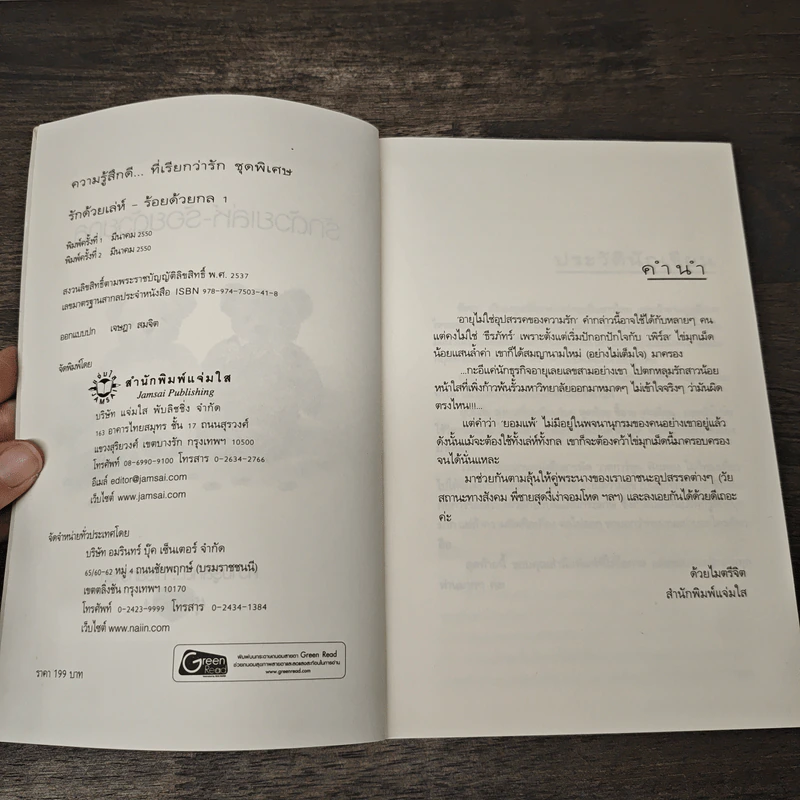 ความรู้สึกดี... ที่เรียกว่ารัก ชุดพิเศษ
รักด้วยเล่ห์ - ร้อยด้วยกล 1
พิมพ์ครั้งที่ 1 มีนาคม 2550
พิมพ์ครั้งที่ 2 มีนาคม 2550
สงวนลิขสิทธิ์ตามพระราชบัญญัติลิขสิทธิ์ พ.ศ. 2537
เลขมาตรฐานสากลประจำหนังสือ ISBN 978-974-7503-41-8
ออกแบบปก เจษฎา สมจิต
จัดพิมพ์โดย
สำนักพิมพ์แจ่มใส
Jamsai Publishing
บริษัท แจ่มใส พับลิชชิ่ง จำกัด
163 อาคารไทยสมุทร ชั้น 17 ถนนสุรวงศ์
แขวงสุริยวงศ์ เขตบางรัก กรุงเทพฯ 10500
โทรศัพท์ 08-6990-9100 โทรสาร 0-2634-2766
อีเมล์ editor@jamsai.com
เว็บไซต์ www.jamsai.com
จัดจำหน่ายทั่วประเทศโดย
บริษัท อมรินทร์ บุ๊ค เซ็นเตอร์ จำกัด
65/60-62 หมู่ 4 ถนนชัยพฤกษ์ (บรมราชชนนี)
เขตตลิ่งชัน กรุงเทพฯ 10170
โทรศัพท์ 0-2423-9999 โทรสาร 0-2434-1384
เว็บไซต์ www.naiin.com
ราคา 199 บาท
Green Read
พิมพ์บนกระดาษถนอมสายตา Green Read
ช่วยถนอมสุขภาพสายตาและลดแสงสะท้อนในการอ่าน
www.greenread.com
คำนำ
'อายุไม่ใช่อุปสรรคของความรัก' คำกล่าวนี้อาจใช้ได้กับหลายๆ คน
แต่คงไม่ใช่ 'ธีรภัทร์' เพราะตั้งแต่เริ่มปักอกปักใจกับ 'เพิร์ล' ไข่มุกเม็ด
น้อยแสนล้ำค่า เขาก็ได้สมญานามใหม่ (อย่างไม่เต็มใจ) มาครอง
...กะอีแค่นักธุรกิจอายุเลยเลขสามอย่างเขา ไปตกหลุมรักสาวน้อย
หน้าใสที่เพิ่งก้าวพ้นรั้วมหาวิทยาลัยออกมาหมาดๆ ไม่เข้าใจจริงๆ ว่ามันผิด
ตรงไหน!!!...
แต่คำว่า 'ยอมแพ้' ไม่มีอยู่ในพจนานุกรมของคนอย่างเขาอยู่แล้ว
ดังนั้นแม้จะต้องใช้ทั้งเล่ห์ทั้งกล เขาก็จะต้องคว้าไข่มุกเม็ดนี้มาครอบครอง
จนได้นั่นแหละ
มาช่วยกันตามลุ้นให้คู่พระนางของเราเอาชนะอุปสรรคต่างๆ (วัย
สถานะทางสังคม พี่ชายสุดงี่เง่าจอมโหด ฯลฯ) และลงเอยกันได้ด้วยดีเถอะ
ค่ะ
ด้วยไมตรีจิต
สำนักพิมพ์แจ่มใส